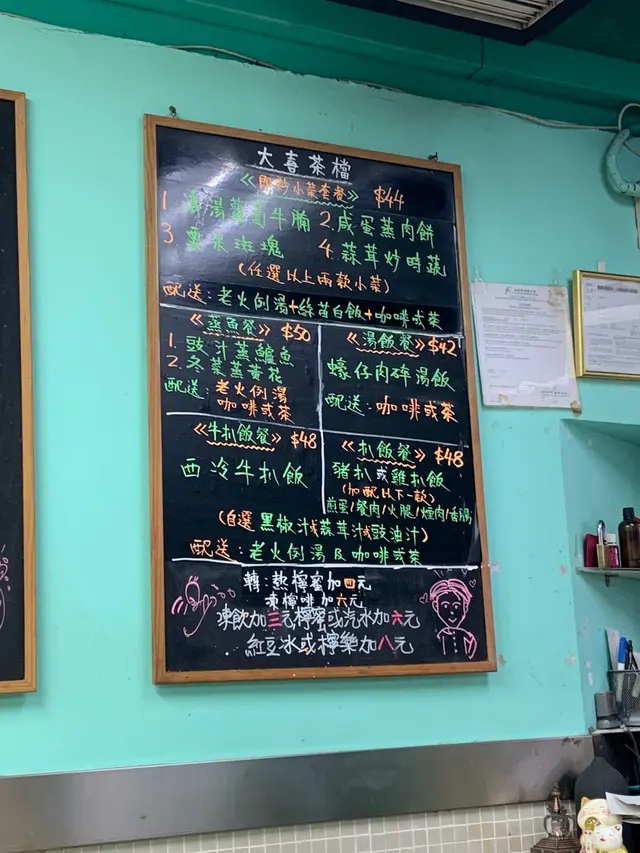 大喜茶檔
《即炒小菜套餐》 $44
1 湯蘿蔔牛腩 2. 咸蛋蒸肉餅
3 粟米斑塊 4. 蒜茸炒時蔬
(任選以上兩款小菜)
配送: 老火例湯+絲苗白飯+咖啡或茶
《蒸魚餐》 $50
1. 豉汁蒸鱸魚
2. 冬菜蒸黃花
配送: 老火例湯
咖啡或茶
《湯飯餐》 $42
蠔仔肉碎湯飯
配送: 咖啡或茶
《牛扒飯餐》 $48
西冷牛扒飯
《扒飯餐》 $48
豬扒或雞扒飯
(加配以下一款)
煎蛋/餐肉/火腿/煙肉/香腸
(自選黑椒汁或蒜茸汁或豉油汁)
配送: 老火例湯及咖啡或茶
轉: 熱檸蜜加四元
凍檸啡加六元
凍飲加三元檸蜜或汽水加六元
紅豆冰或檸樂加八元